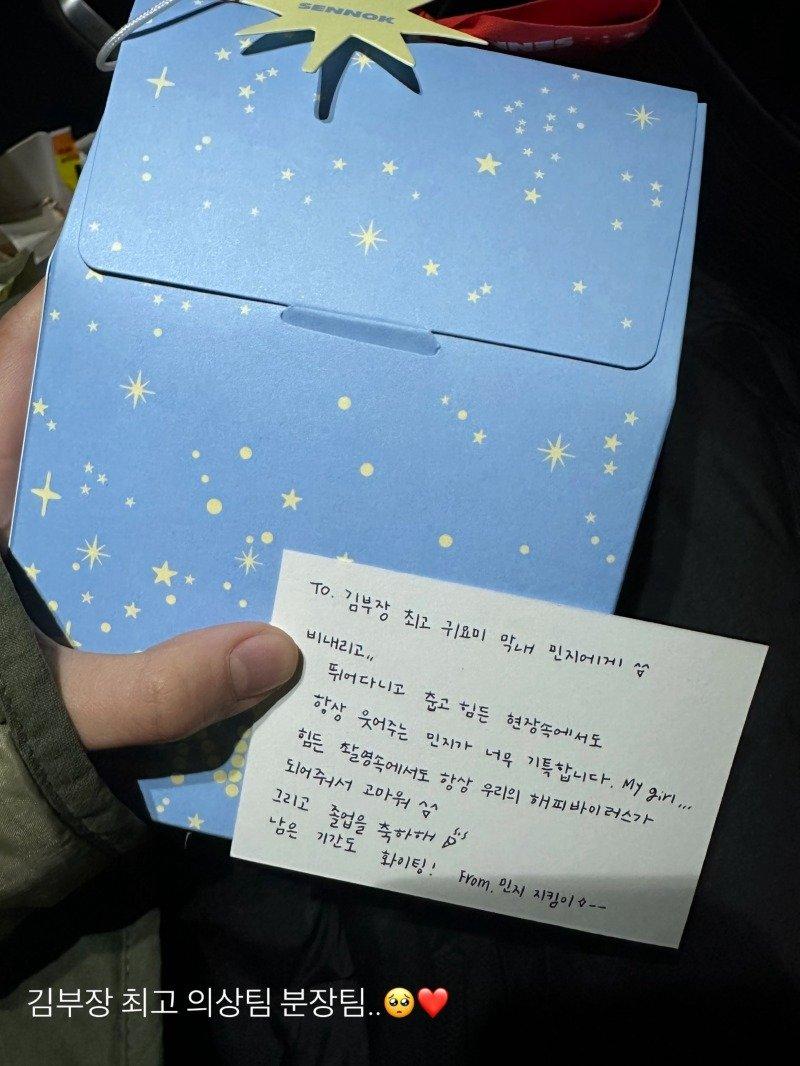 SENNOK
To. 김부장 최고 귀요미 막내 민지에게 ^^
비내리고,,
뛰어다니고 춥고 힘든 현장속에서도
항상 웃어주는 민지가 너무 기특합니다. My girl...
힘든 촬영속에서도 항상 우리의 해피바이러스가
되어줘서 고마워 ^^
그리고 졸업을 축하해
남은 기간도 화이팅! From. 민지 지킴이 ☆--
김부장 최고 의상팀 분장팀..🥺❤️